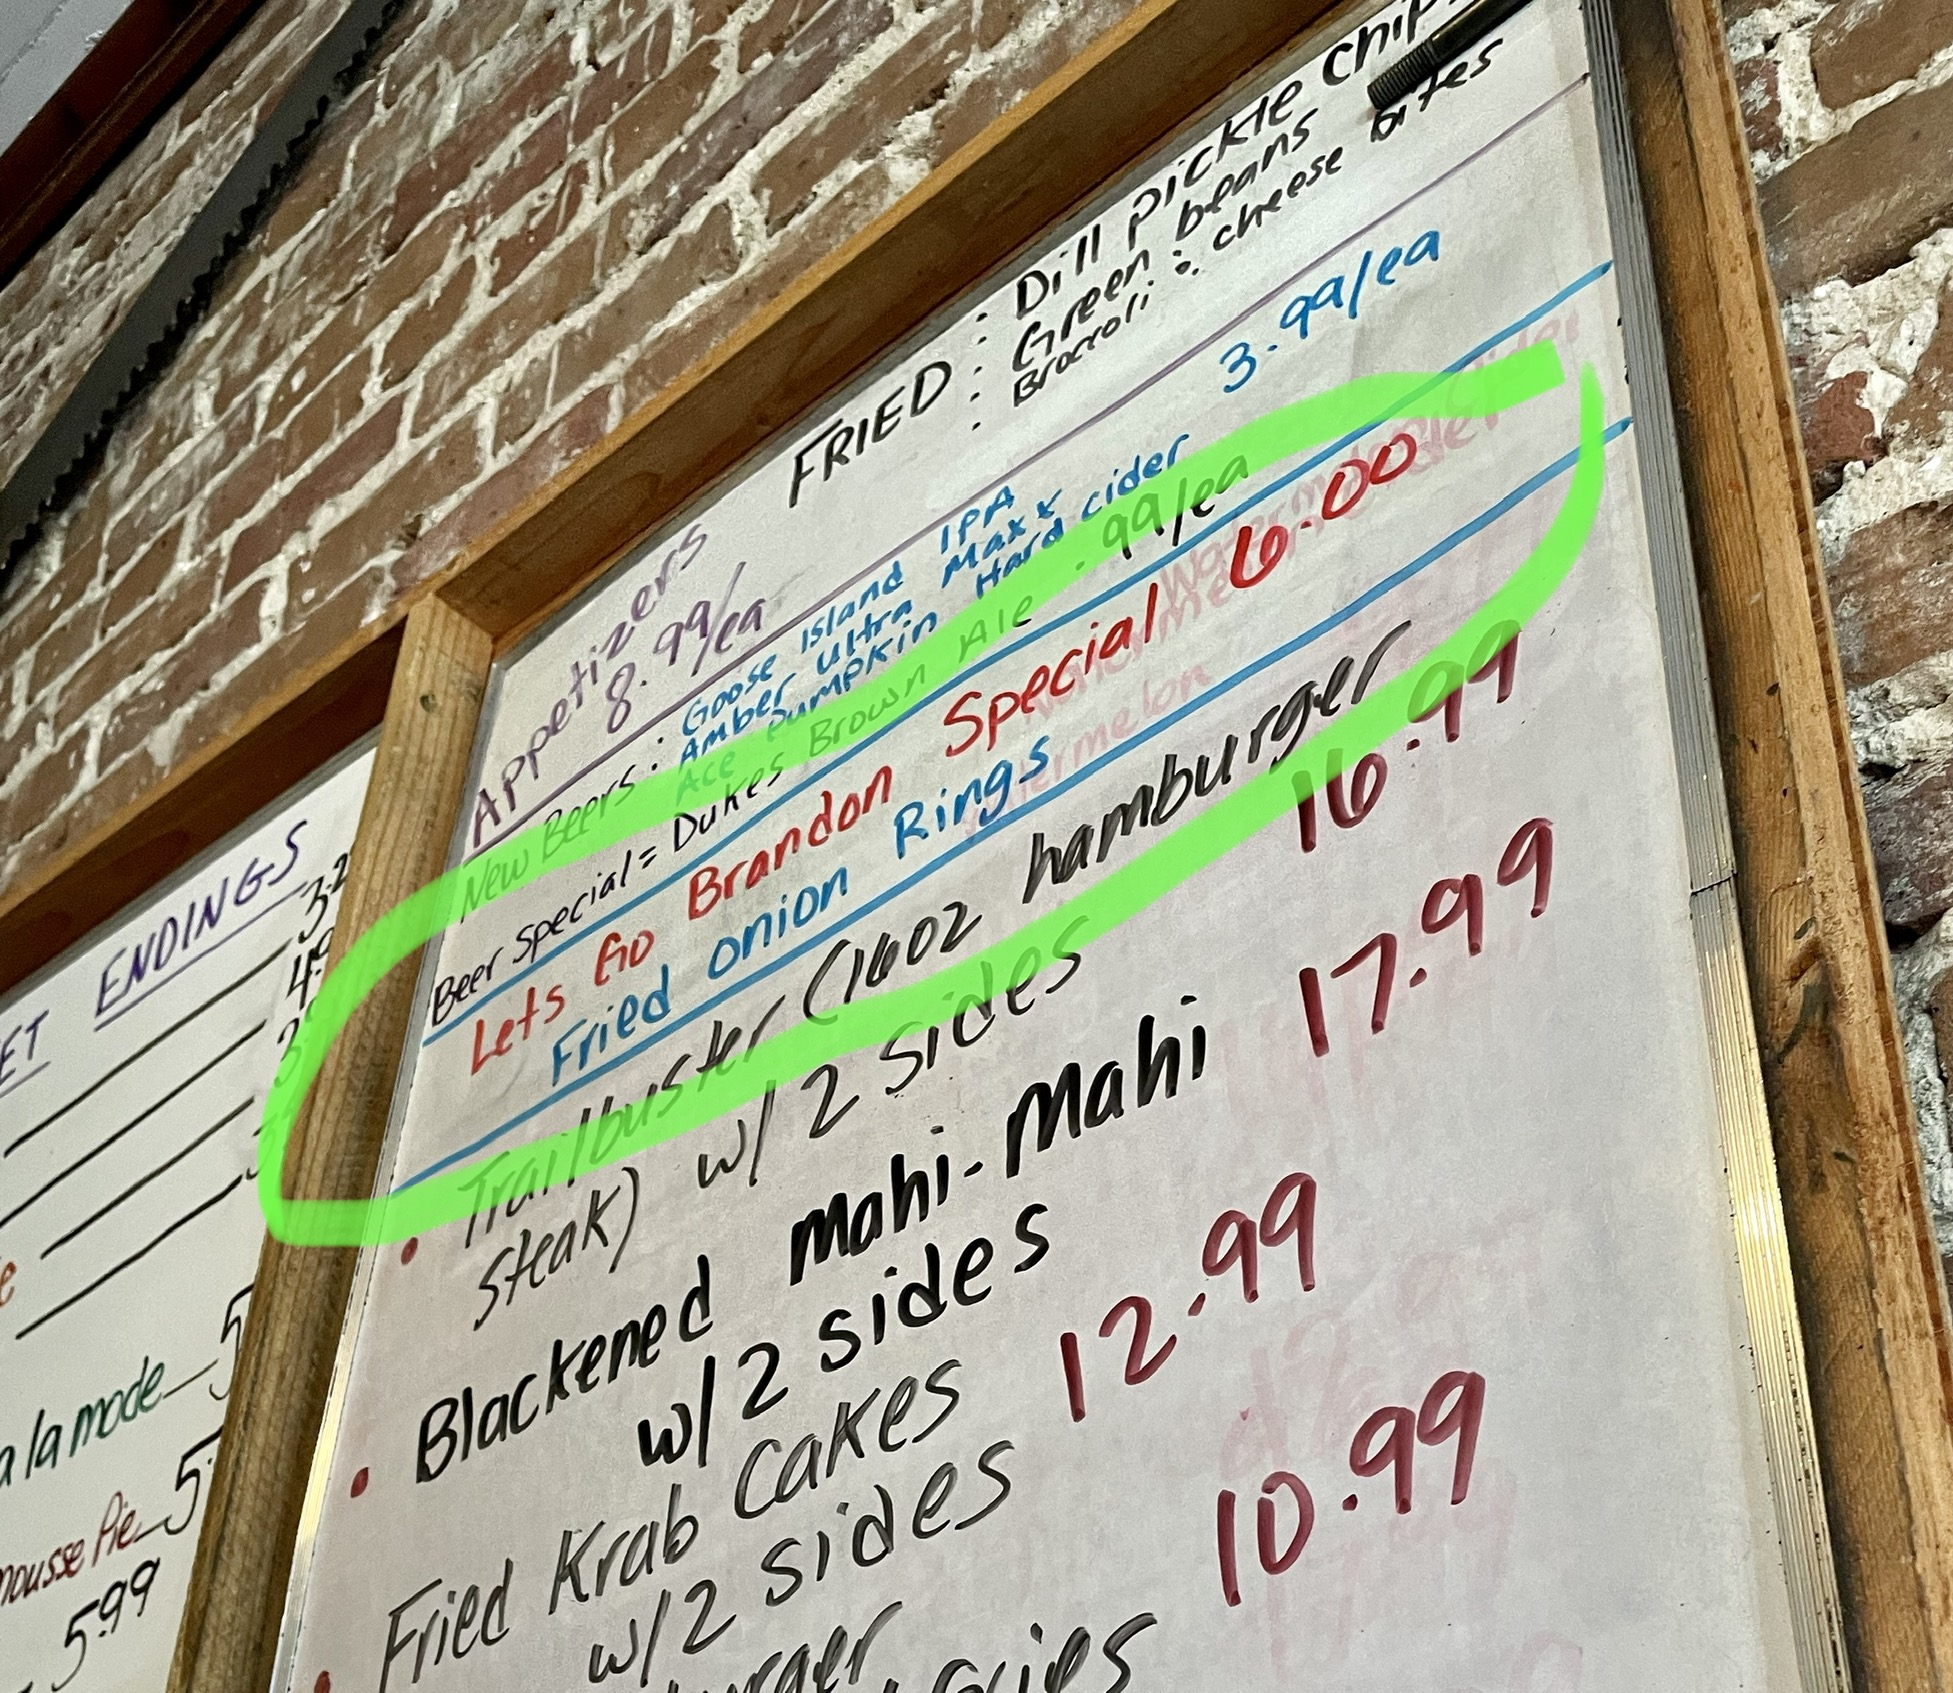 ET ENDINGS
3.2
a la mode 5
mousse Pie 5
5.99
FRIED : Dill pickle chip
: Green beans
: Broccoli & cheese bites
Appetizers
8.99/ea
New Beers : Goose Island IPA 3.99/ea
Amber Ultra Maxx
Ace Pumpkin Hard cider
Beer Special = Dukes Brown Ale .99/ea
Lets Go Brandon Special 6.00
Fried onion Rings
• Trailbuster (16oz hamburger
steak) w/ 2 sides 16.99
• Blackened Mahi-Mahi 17.99
w/ 2 sides
• Fried Krab Cakes 12.99
w/ 2 sides
10.99